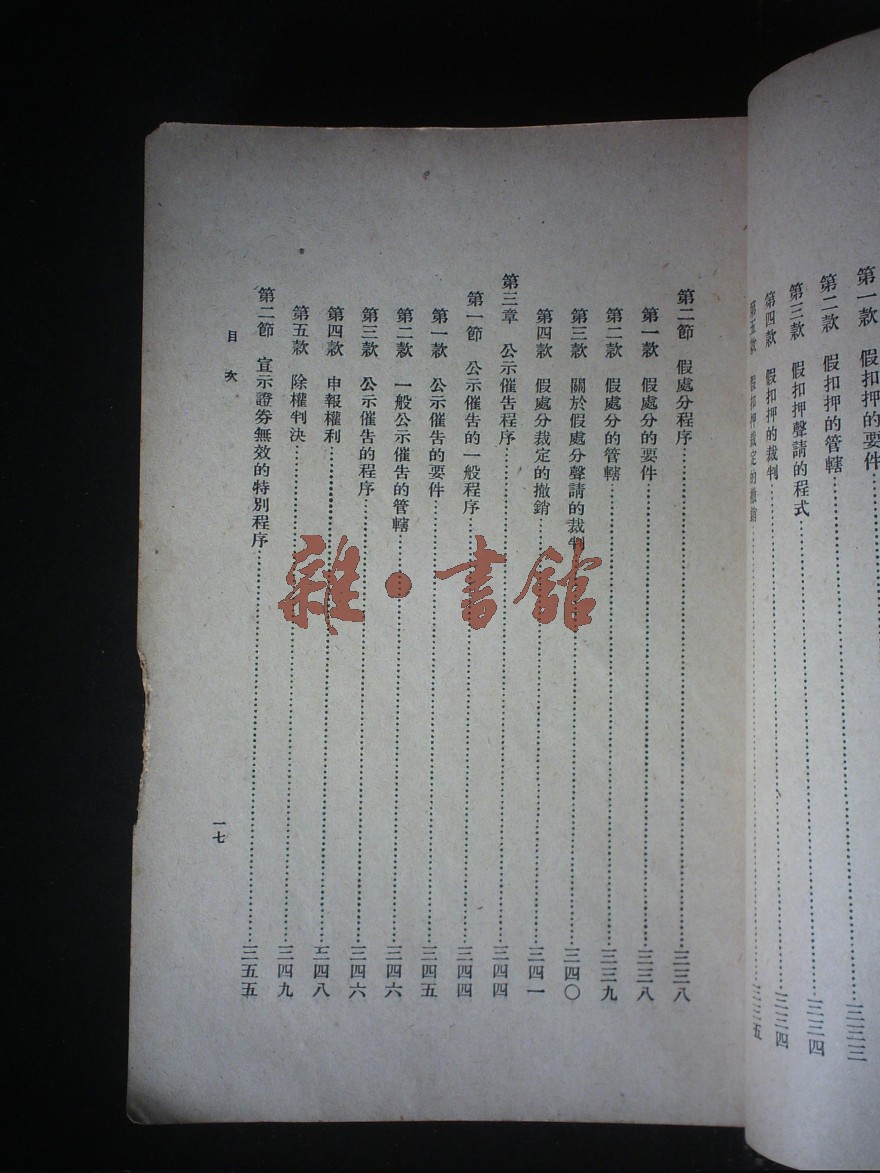 第一款 假扣押的要件……三三三
第二款 假扣押的管轄……三三四
第三款 假扣押聲請的程式……三三四
第四款 假扣押的裁判……三三四
第五款 假扣押裁定的撤銷……三三五
第二節 假處分程序……三三八
第一款 假處分的要件……三三八
第二款 假處分的管轄……三三九
第三款 關於假處分聲請的裁判……三四〇
第四款 假處分裁定的撤銷……三四一
第三章 公示催告程序……三四四
第一節 公示催告的一般程序……三四四
第一款 公示催告的要件……三四五
第二款 一般公示催告的管轄……三四六
第三款 公示催告的程序……三四六
第四款 申報權利……三四八
第五款 除權判決……三四九
第二節 宣示證券無效的特別程序……三五五
目次
一七
雜·書館